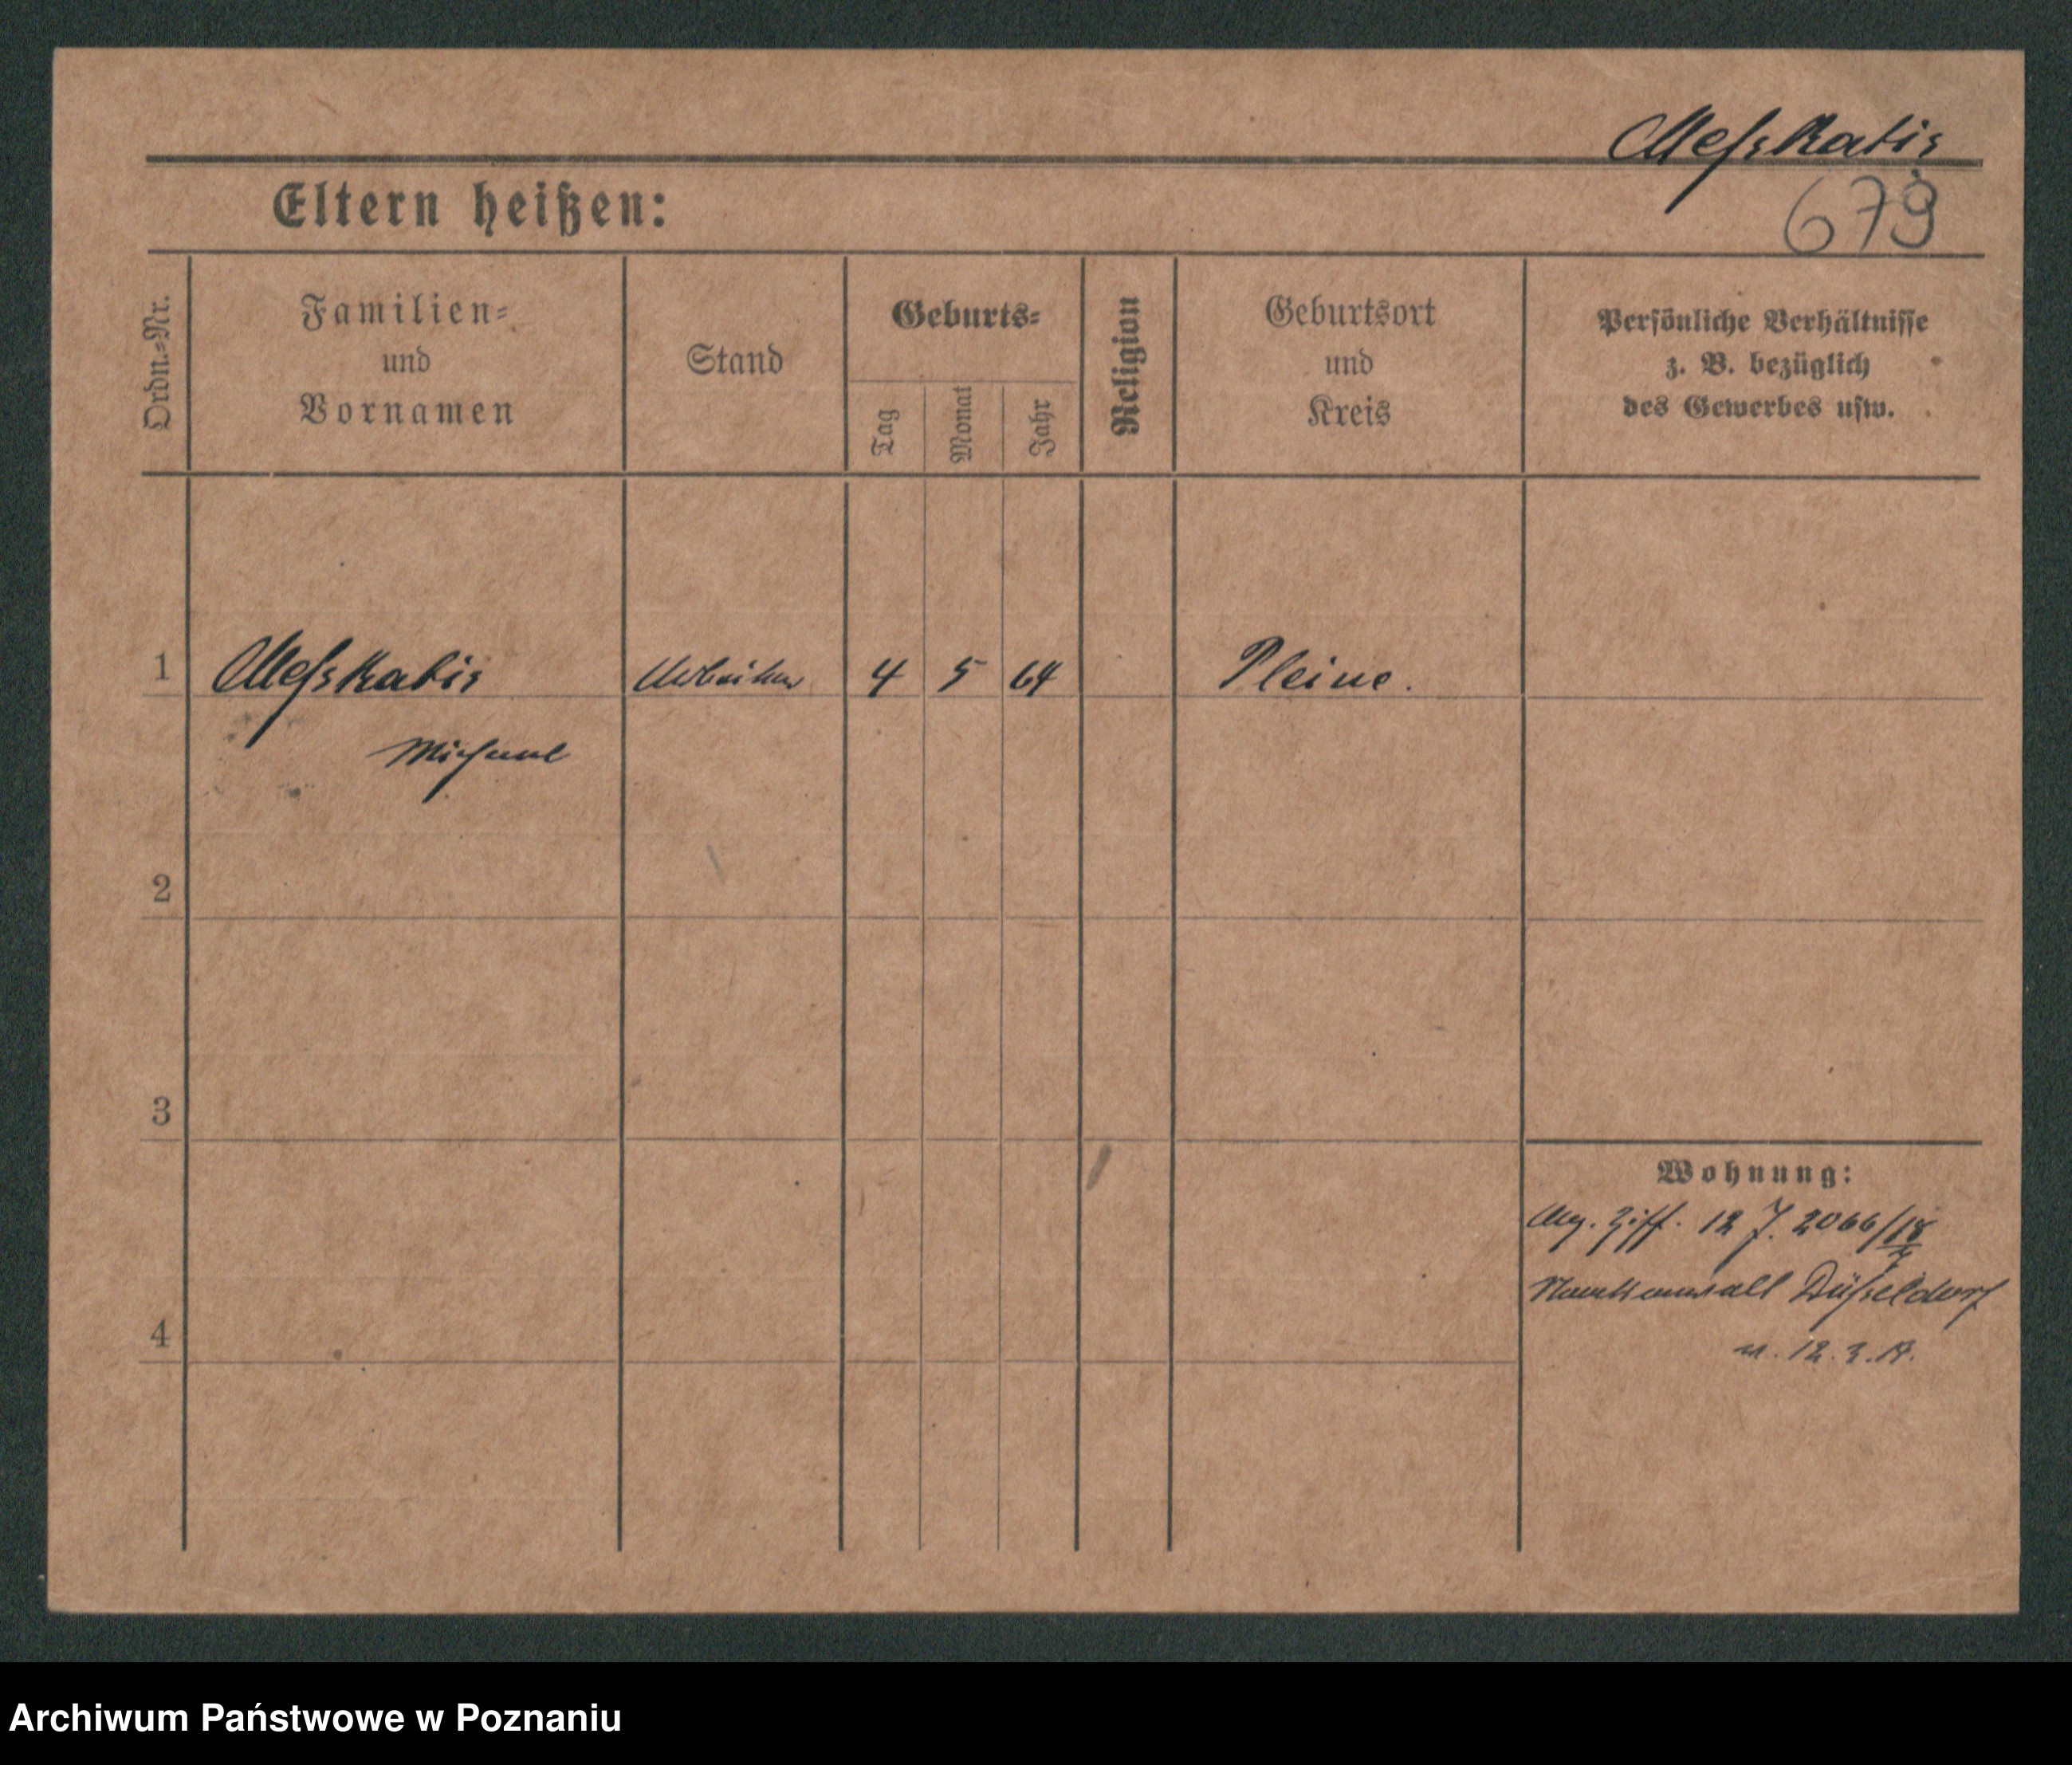 Messkatis
679
Eltern heißen:
Ordn.=Nr.
Familien=
und
Vornamen
Stand
Geburts=
Tag
Monat
Jahr
Religion
Geburtsort
und
Kreis
Persönliche Verhältnisse
z. B. bezüglich
des Gewerbes usw.
1
Messkatis
Arbeiter
4
5
64
Pleine.
Michael
2
3
4
Wohnung:
Ziff. 12 J. 2066/18
Düsseldorf
12.3.
Archiwum Państwowe w Poznaniu